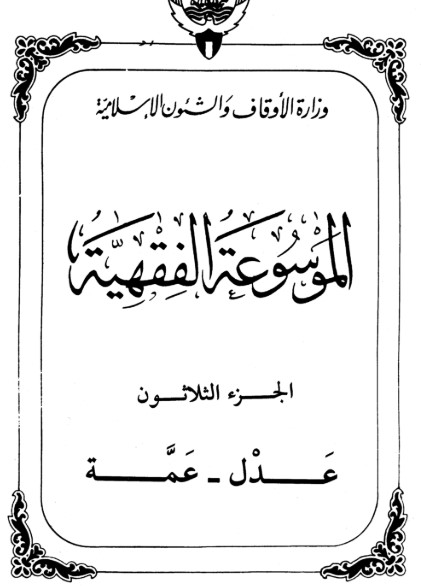 وزارة الأوقاف والشئون الإسلامية
الموسوعة الفقهية
الجزء الثلاثون
عَدْل - عَمَّة